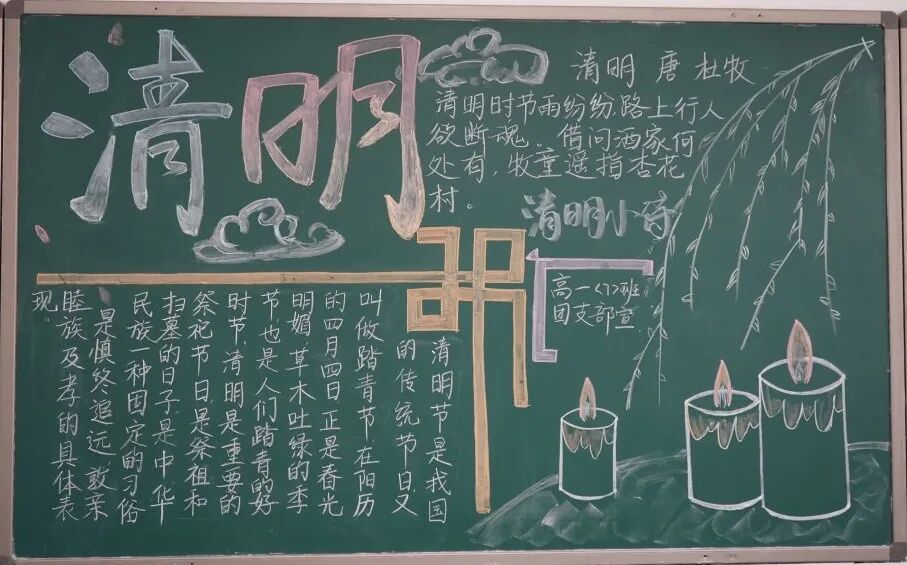 清明
清明 唐 杜牧
清明时节雨纷纷,路上行人
欲断魂。借问酒家何
处有,牧童遥指杏花
村。
清明小诗
高一<7>班
团支部宣
清明节是我国
的传统节日,又
叫做踏青节在阳历
的四月四日正是春光
明媚,草木吐绿的季
节也是人们踏青的好
时节.清明是重要的
祭祀节日,是祭祖和
扫墓的日子,是中华
民族一种固定的习俗
是慎终追远、敦亲
睦族及孝的具体表
现。